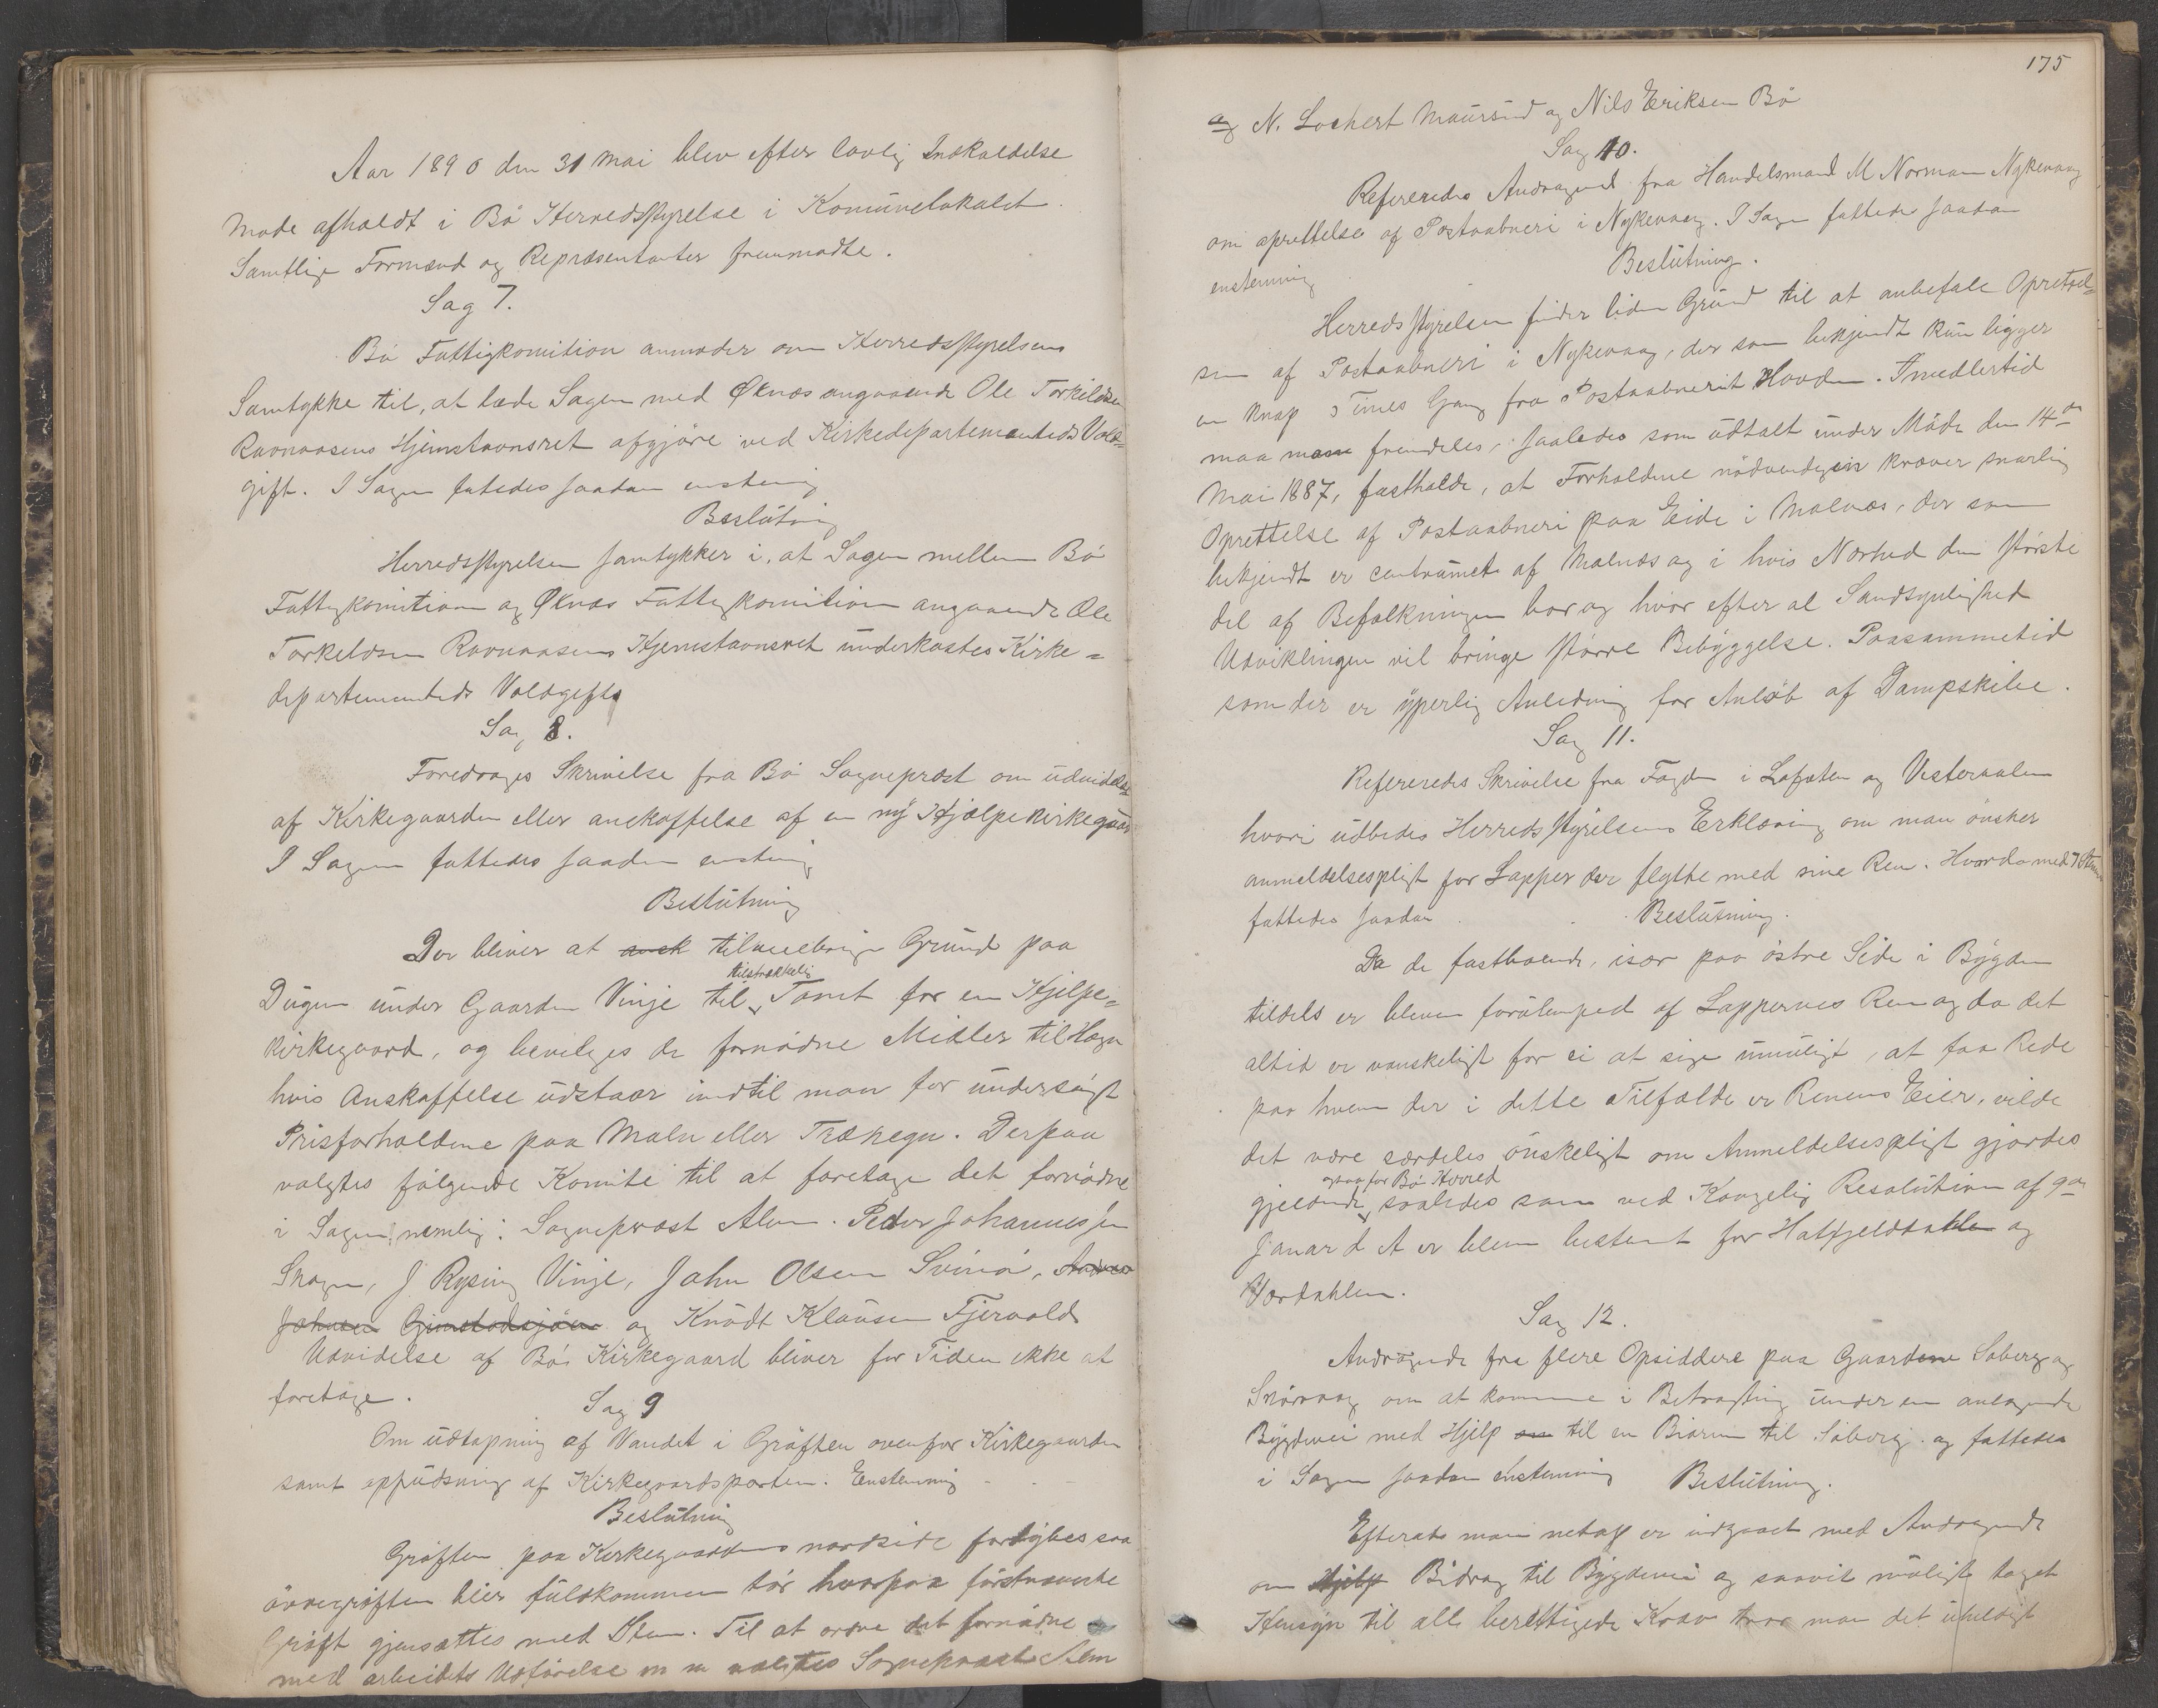 Aar 1890 den 31 Mai blev efter lovlig Indkaldelse
Møde afholdt i Bø Herredsstyrelse i Komunelokalet.
Samtlige Formænd og Repræsentanter fremmødte.
Sag 7.
Bø Fattigkomition anmoder om Herredsstyrelsens
Samtykke til, at lade Sagen med Øknæs angaaende Ole Torkildsen
Ravnaasens Hjemstavnsret afgjøre ved Kirkedepartementeds Vold-
gift. I Sagen fatedes saadan enstemig
Beslutning
Herredsstyrelsen samtykker i, at Sagen mellem Bø
Fattigkomition og Øknæs Fattigkomition angaaende Ole
Torkeldsen Ravnaasens Hjemstavnsret underkastes Kirke=
departementeds Voldgift
Sag 8.
Foredroges Skrivelse fra Bø Sogneprest om udvidelse
af Kirkegaarden eller anskaffelse af en ny Hjælpekirkegaar
I Sagen fattedes saadan enstemig
Beslutning
Der bliver at tilveiebringe Grund paa
tilstrækkelig
Dugen under Gaarden Vinje til Tomt for en Hjelpe=
kirkegaard, og beviliges de fornødne Midler til Hegn
hvis Anskaffelse udstaar indtil man for undersøgt
Prisforholdene paa Maln eller Træhegn. Derpaa
valgtes følgende Komite til at foretage det fornødne
i Sagen nemlig: Sogneprest Alm. Peder Johannessen
Skagen, J Rysing Vinje, John Olsen Svinø, Andreas
Johnsen Gimstadsjøen og Knudt Klausen Fjervold
Udvidelse af Bø Kirkegaard bliver for Tiden ikke at
foretage.
Sag 9
Om udtapning af Vandet i Grøften ovenfor Kirkegaarden
samt oppudsning af Kirkegaardsporten. Enstemig
Beslutning
Grøften paa Kirkegaardens nordside fordybes saa
øvregrøften blir fuldkommen tør hvorpaa førstnævnte
Grøft gjensættes med Sten. Til at ordne det fornødne
med arbeidets Udførelse m m valgtes Sogneprest Alm
175
og N. Lochert Maursund og Nils Eriksen Bø
Sag 10.
Refereredes Andragende fra Handelsmand M Norman Nykevaag
om oprettelse af Postaabneri i Nykevaag. I Sagen fattedes saadan
enstemmig
Beslutning.
Herredsstyrelsen finder liden Grund til at anbefale Oprettel=
sen af Postaabneri i Nykevaag, der som bekjendt kun ligger
en knap Times Gang fra Postaabneriet Hovden. Imedlertid
maa man fremdeles, saaledes som udtalt under Møde den 14de
Mai 1887, fastholde, at Forholdene nødvendigvis kræver snarlig
Oprettelse af Postaabneri paa Eide i Malnæs, der som
bekjendt er centrumet af Malnæs og i hvis Nærhed den største
del af Befolkningen bor og hvor efter al Sandsynlighed
Udviklingen vil bringe større Bebyggelse. Paasammetid
som der er yperlig Anledning for Anløb af Dampskibe.
Sag 11.
Refereredes Skrivelse fra Fogden i Lofoten og Vesteraalen
hvori udbedes Herredsstyrelsens Erklæring om man ønsker
anmeldelsespligt for Lapper der flytte med sine Ren. Hvorda med 7 Stemmer
fattedes saadan Beslutning.
Da de fastboende, især paa østre Side i Bygden
tildels er bleven forulempet af Lappernes Ren og da det
altid er vanskeligt for ei at sige umuligt, at faa Rede
paa hvem der i dette Tilfælde er Renens Eier, vilde
det være særdeles ønskeligt om Anmeldelsespligt gjordes
ogsaa for Bø Herred
gjeldende, saaledes som ved Kongelig Resolution af 9de
Januar d A er bleven bestemt for Hatfjelddahlen og
Værdahlen.
Sag 12.
Andragende fra flere Opsiddere paa Gaardene Saberg og
Skårvaag om at komme i Betragtning under en anlagende
Bygdevei med Hjelp om til en Biarm til Saberg og fattedes
i Sagen saadan enstemmig Beslutning.
Efterat man netop er indgaaet med Andragende
om Hjelp Bidrag til Bygdevei og saavit muligt taget
Hensyn til alle berettigede Krav tror man det uheldigt